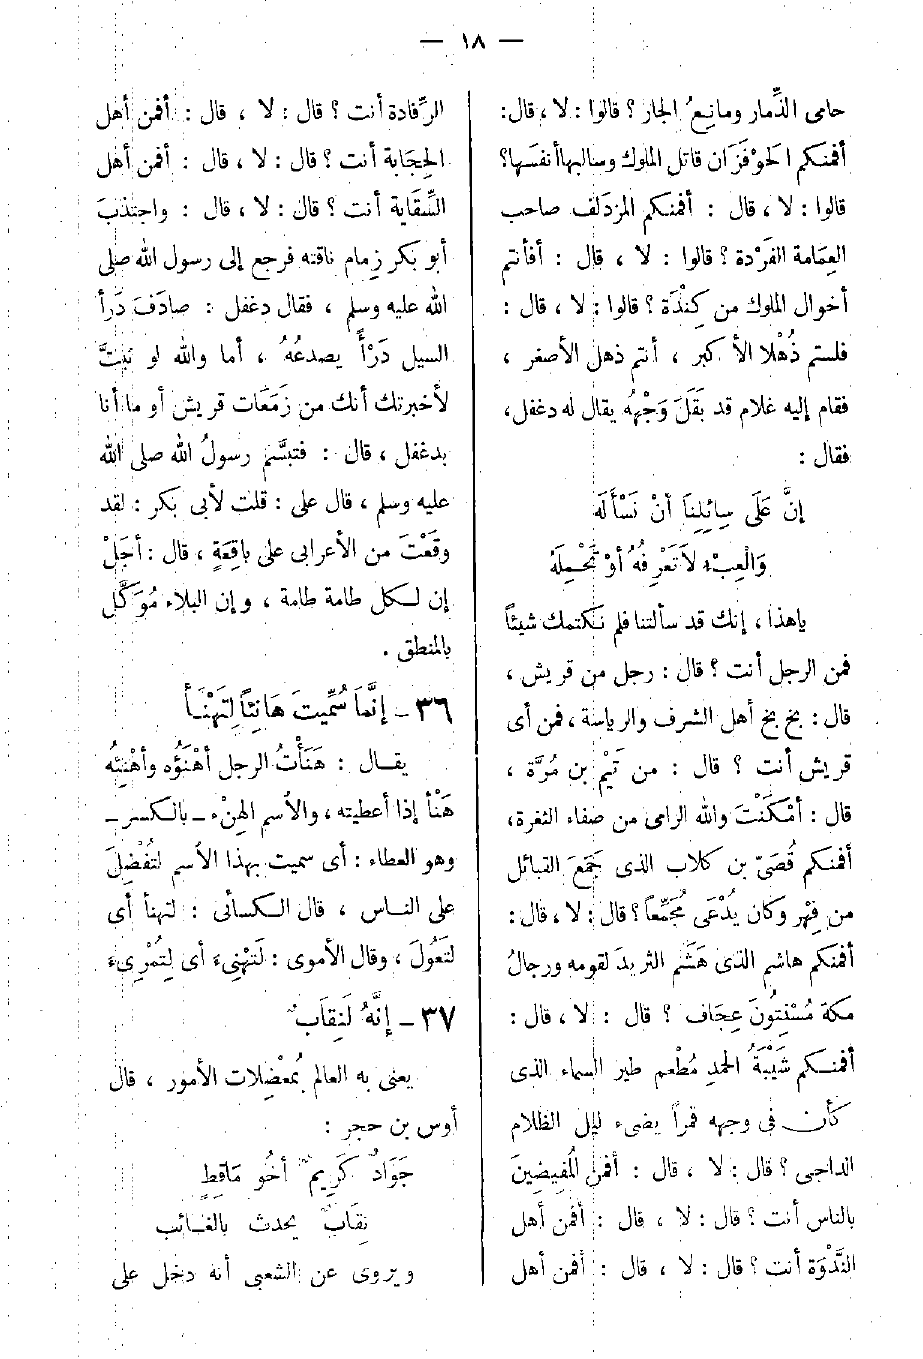 — ١٨ —
حامى الذِّمار ومانِعُ الجار ؟ قالوا : لا ، قال :
أفمنكم الحَوْفَزَان قاتل الملوك وسالبها أنفسَها ؟
قالوا : لا ، قال : أفمنكم المزدَلف صاحب
العِمَامة الفَرْدة ؟ قالوا : لا ، قال : أفأنتم
أخوال الملوك من كِنْدَة ؟ قالوا : لا ، قال :
فلستم ذُهْلا الأكبر ، أنتم ذهل الأصغر ،
فقام إليه غلام قد بَقَلَ وَجْهِهُ يقال له دغفل ،
فقال :
إنَّ عَلَى سِائِلِنَا أنْ نَسْأَلَهْ
وَالْعِبْءِ لاَ تَعْرِفُهُ أوْ تَحْمِلَهْ
ياهذا ، إنك قد سألتنا فلم نكتمك شيئاً
فمن الرجل أنت ؟ قال : رجل من قريش ،
قال : بخ بخ أهل الشرف والرياسة ، فمن أى
قريش أنت ؟ قال : من تَيْم بن مُرَّة ،
قال : أمْكَنْتَ والله الرامى من صفاء الثغرة ،
أفمنكم قُصَىّ بن كلاب الذى جَمَعَ القبائل
من فِهْر وكان يُدْعَى مُجَمِّعاً ؟ قال : لا ، قال :
أفمنكم هاشم الذى هَشَم الثريدَ لقومه ورجالُ
مكة مُسْنِتُونَ عِجَاف ؟ قال : لا ، قال :
أفمنكم شَيْبَةُ الحمدِ مُطْعم طير السماء الذى
كأن فى وجهه قمراً يضىء ليل الظلام
الداجى ؟ قال : لا ، قال : أفمن المُفِيضِينَ
بالناس أنت ؟ قال : لا ، قال : أفمن أهل
النَّدْوَة أنت ؟ قال : لا ، قال : أفمن أهل
الرِّفادة أنت ؟ قال : لا ، قال : أفمن أهل
الحِجَابة أنت ؟ قال : لا ، قال : أفمن أهل
السِّقَاية أنت ؟ قال : لا ، قال : واجتذبَ
أبو بكر زِمام ناقته فرجع إلى رسول الله صلى
الله عليه وسلم ، فقال دغفل : صادَفَ دَرأ
السيل دَرْأً يصدعُهُ ، أما والله لو ثبتَّ
لأخبرتك أنك من زَمَعَات قريش أو ما أنا
بدغفل ، قال : فتبسَّم رسولُ الله صلى الله
عليه وسلم ، قال على : قلت لأبى بكر : لقد
وقَعْتَ من الأعرابى على باقِعَةٍ ، قال : أجَلْ
إن لكل طامة طامة ، وإن البلاء مُوَكَّل
بالمنطق .
٣٦ – إنَّمَا سُمِّيتَ هَانِئاً لِتَهْنَأ
يقال : هَنَأْتُ الرجل أهْنَؤُه وأهْنِئهُ
هَنْأ إذا أعطيته ، والأسم الهِنْء – بالكسر –
وهو العطاء : أى سميت بهذا الأسم لتُفْضِلَ
على الناس ، قال الكسائى : لتهنأ أى
لتَعُولَ ، وقال الأموى : لَتَهْنِىءَ أى لِتُمْرِىءَ
٣٧ – إنَّهُ لَنِقَابٌ
يعنى به العالم بمُعْضِلات الأمور ، قال
أوس بن حجر :
جَوَادٌ كَرِيمٌ أخُو مَاقِطٍ
نِقَابٌ يحدث بالغائب
ويروى عن الشعبى أنه دخل على